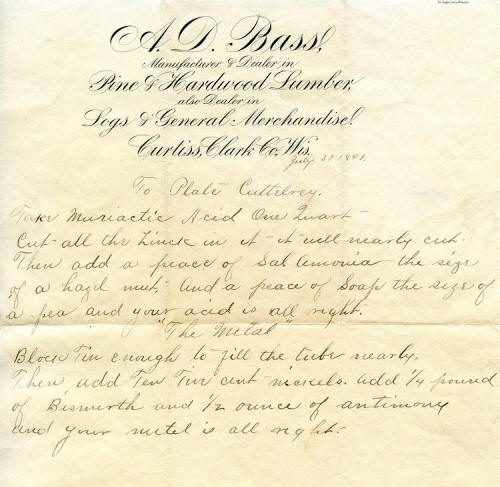 A. D. Bass,
Manufacturer & Dealer in
Pine & Hardwood Lumber,
also Dealer in
Logs & General Merchandise.
Curtiss, Clark Co. Wis.
July 31 1891.
To Plate Cuttelrey.
Take Muriactic Acid One Quart-
Cut all the Zinck in it it will nearly cut.
Then add a peace of Sal Amonia the size
of a hazil nut, And a peace of Soap the size of
a pea and your acid is all right.
"The Metal"
Block Tin enough to fill the tube nearly.
Then, add Ten Five cent nickels. add 1/4 pound
of Bismuth and 1/2 ounce of antimony
and your metel is all right.